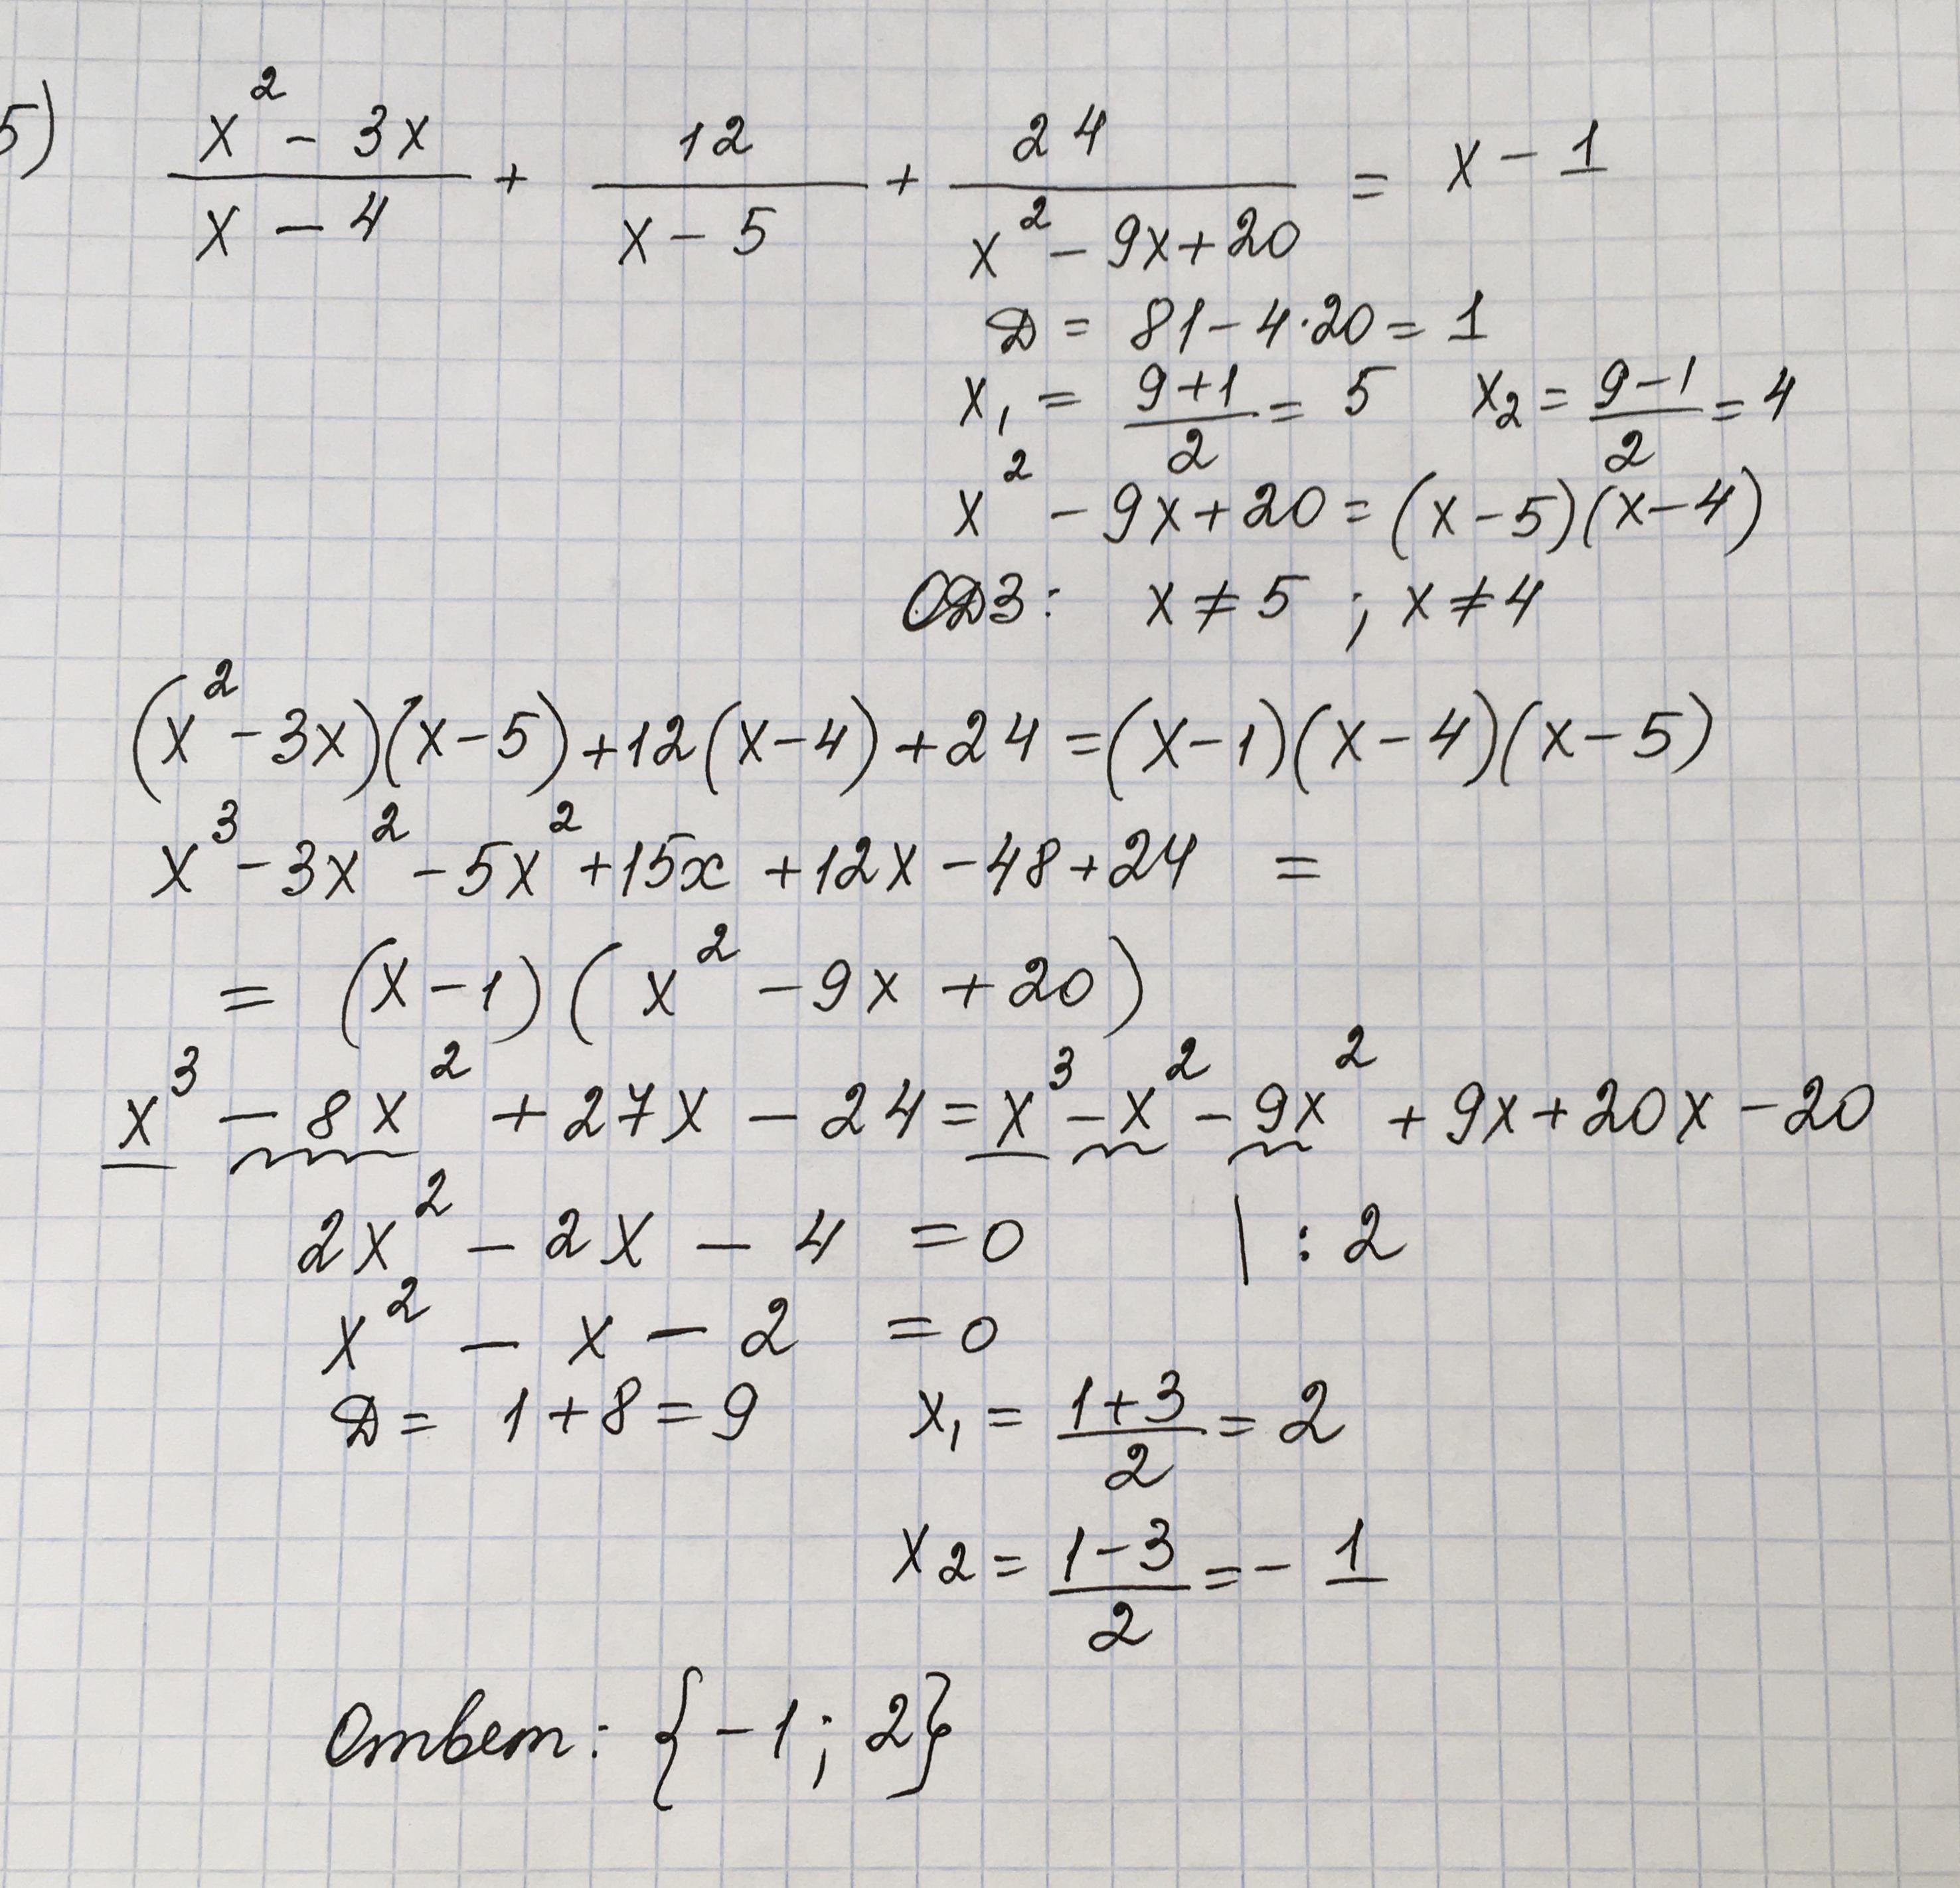 5) (x² - 3x)/(x - 4) + 12/(x - 5) + 24/(x² - 9x + 20) = x - 1
Д = 81 - 4·20 = 1
x₁ = (9+1)/2 = 5 x₂ = (9-1)/2 = 4
x² - 9x + 20 = (x - 5)(x - 4)
ОДЗ: x ≠ 5 ; x ≠ 4
(x² - 3x)(x - 5) + 12(x - 4) + 24 = (x - 1)(x - 4)(x - 5)
x³ - 3x² - 5x² + 15x + 12x - 48 + 24 =
= (x - 1)(x² - 9x + 20)
x³ - 8x² + 27x - 24 = x³ - x² - 9x² + 9x + 20x - 20
2x² - 2x - 4 = 0 | : 2
x² - x - 2 = 0
Д = 1 + 8 = 9 x₁ = (1+3)/2 = 2
x₂ = (1-3)/2 = - 1
Ответ: {-1; 2}